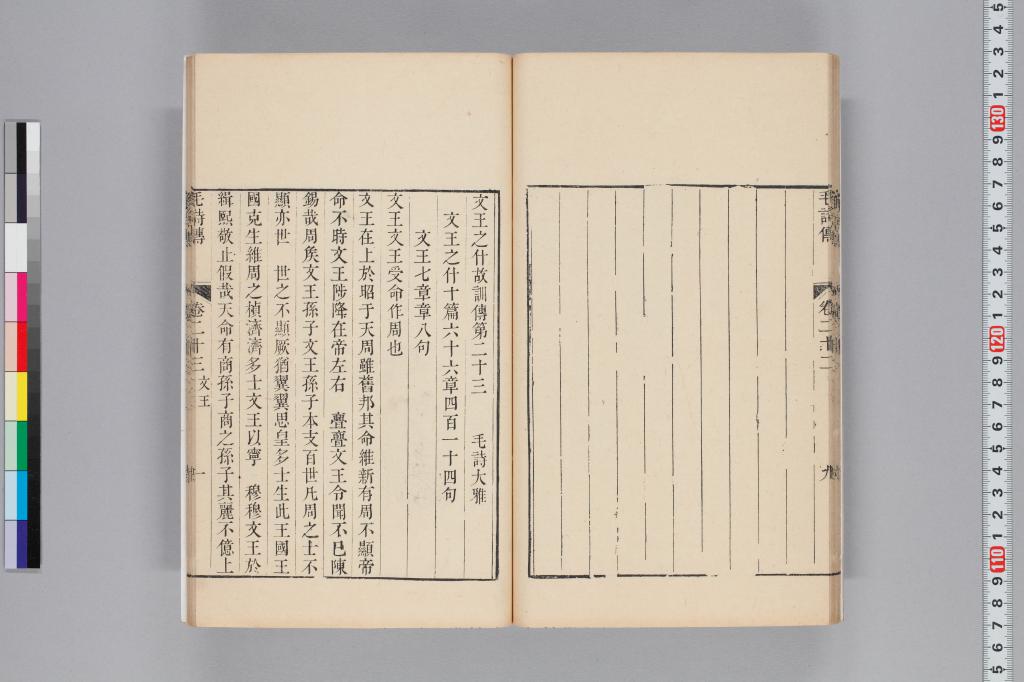 毛詩傳 卷二十二 九
文王之什故訓傳第二十三 毛詩大雅
文王之什十篇六十六章四百一十四句
文王七章章八句
文王文王受命作周也
文王在上於昭于天周雖舊邦其命維新有周不顯帝
命不時文王陟降在帝左右 亹亹文王令聞不已陳
錫哉周矦文王孫子文王孫子本支百世凡周之士不
顯亦世 世之不顯厥猶翼翼思皇多士生此王國王
國克生維周之楨濟濟多士文王以寧 穆穆文王於
緝熙敬止假哉天命有商孫子商之孫子其麗不億上
毛詩傳 卷二十三 文王 一
5 4 3 2 1 130 9 8 7 6 5 4 3 2 1 120 9 8 7 6 5 4 3 2 1 110 9 8 7 6 5